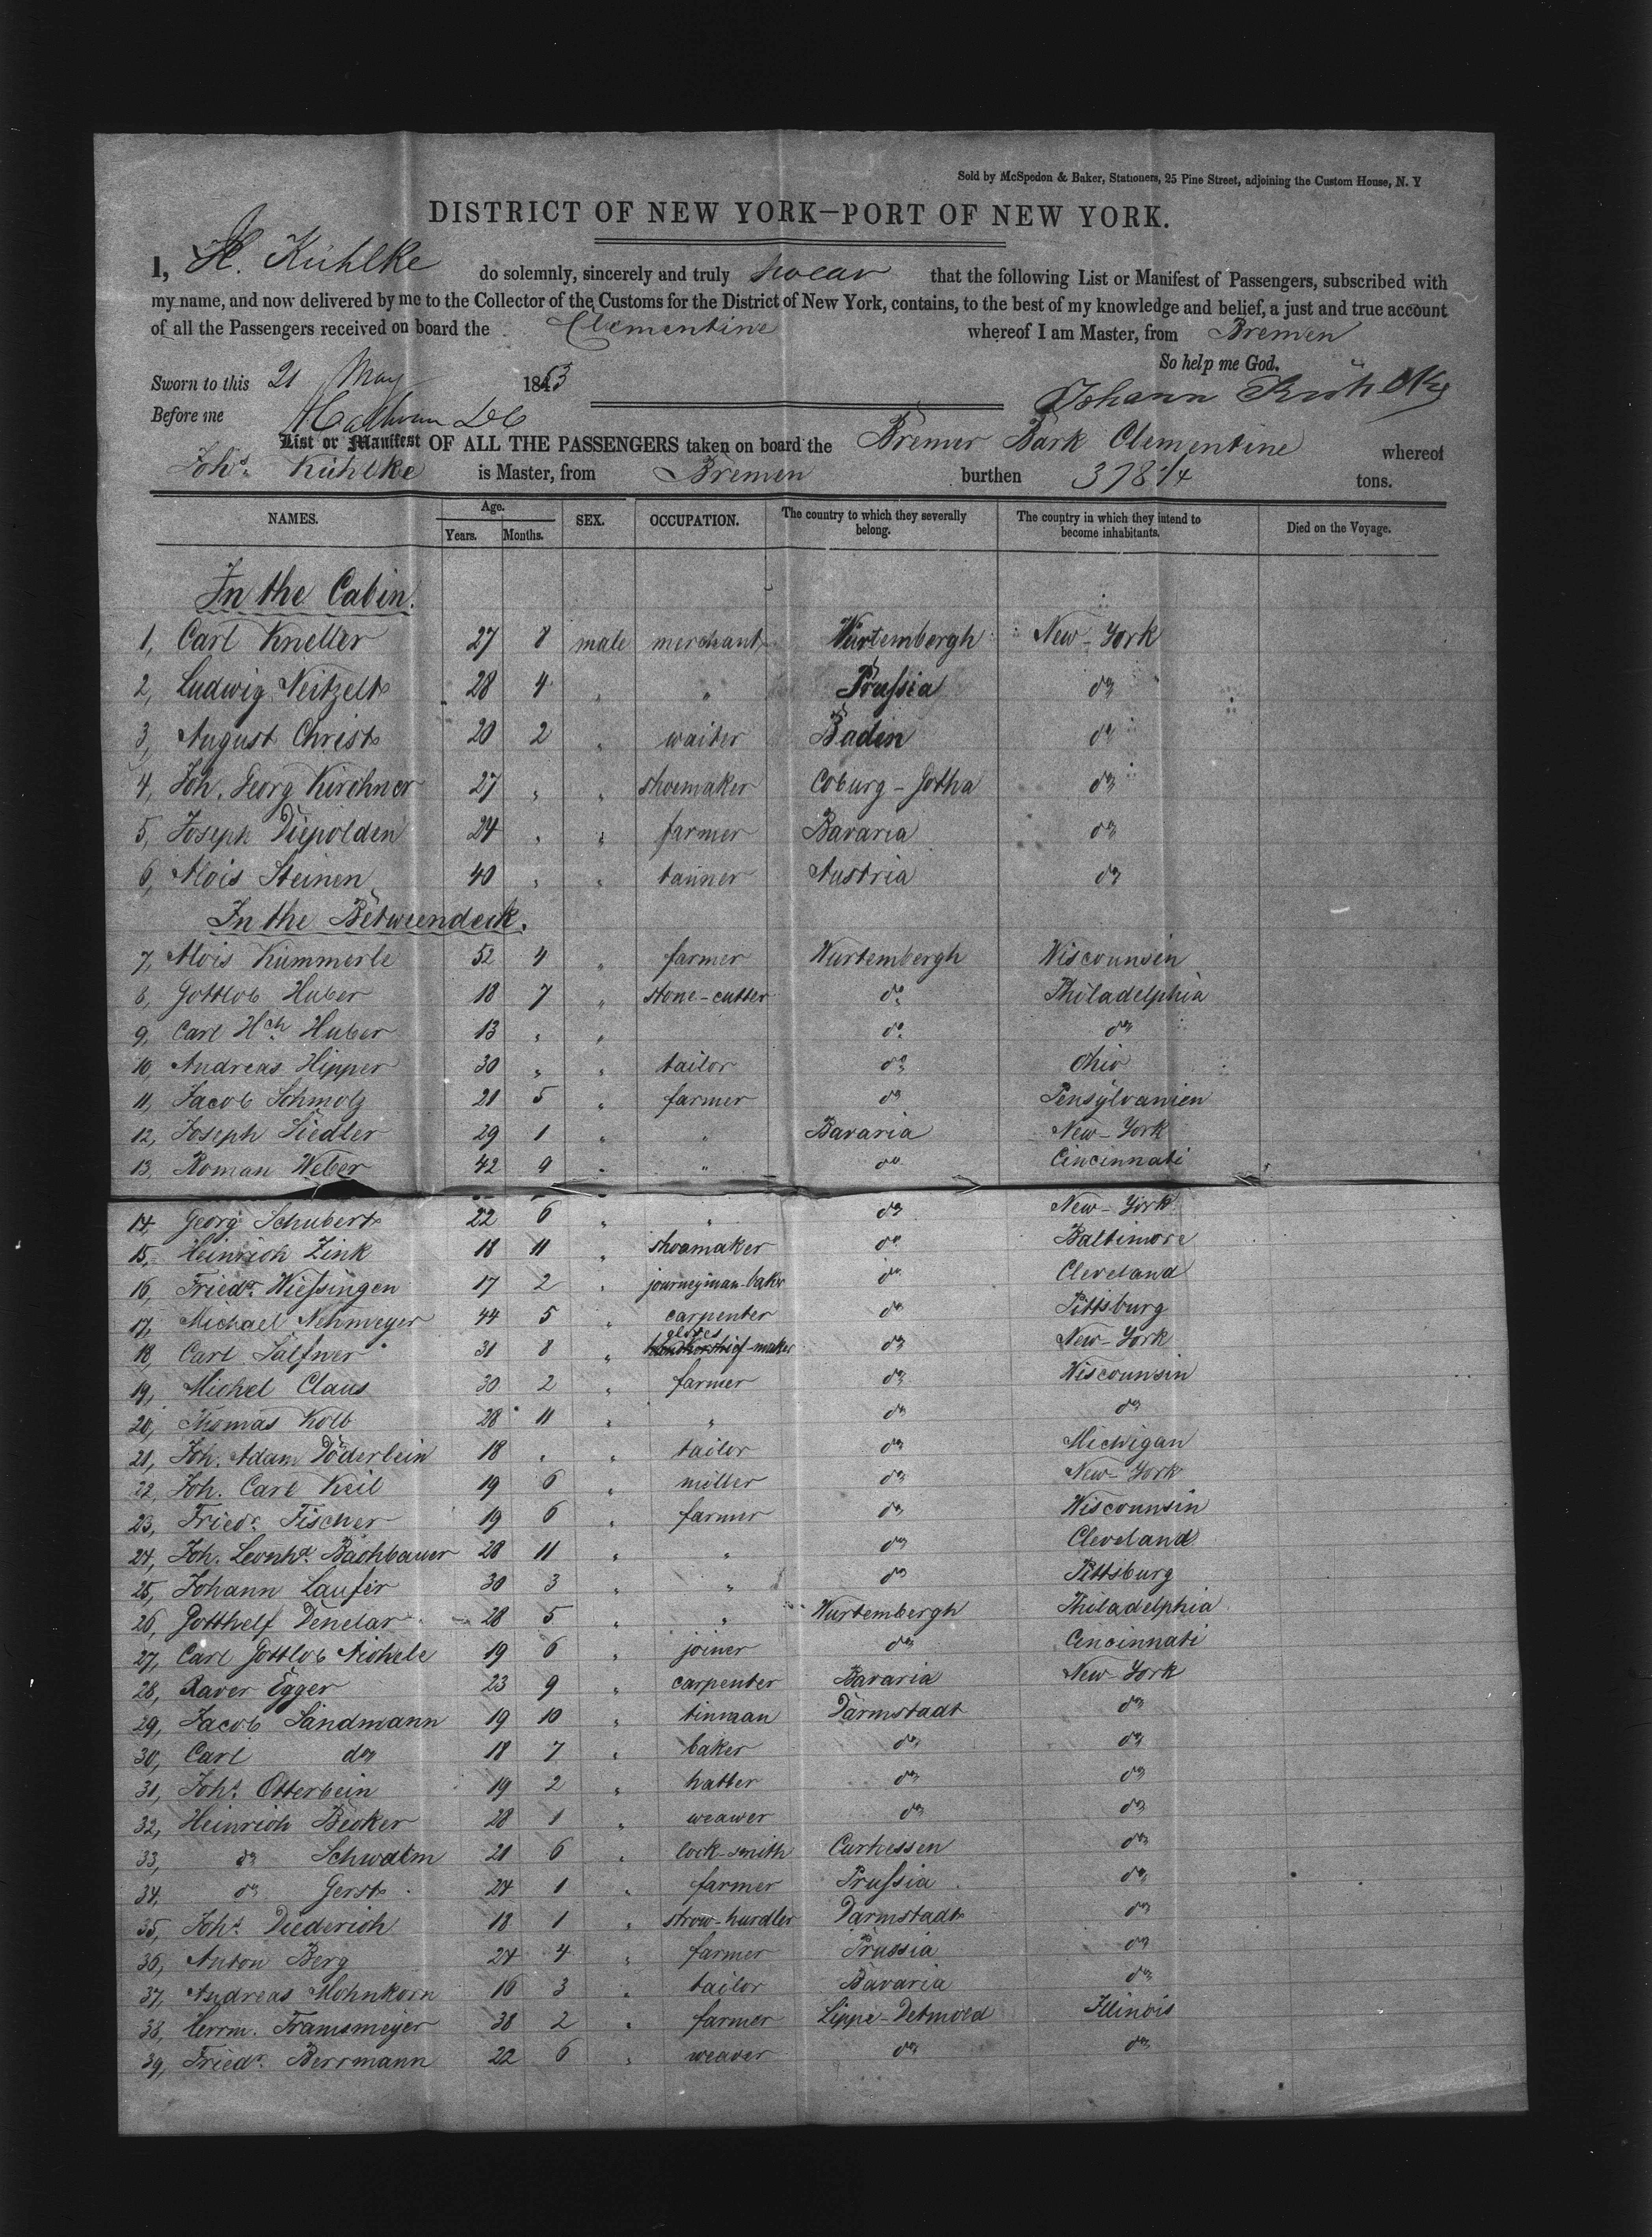 Sold by McSpedon & Baker, Stationers, 25 Pine Street, adjoining the Custom House, N. Y
DISTRICT OF NEW YORK—PORT OF NEW YORK.
I, H. Kühlke do solemnly, sincerely and truly swear that the following List or Manifest of Passengers, subscribed with
my name, and now delivered by me to the Collector of the Customs for the District of New York, contains, to the best of my knowledge and belief, a just and true account
of all the Passengers received on board the Clementine whereof I am Master, from Bremen
So help me God.
Sworn to this 21 May 1853
Johann Kühlke
Before me
List or Manifest OF ALL THE PASSENGERS taken on board the Bremer Bark Clementine whereof
Johs. Kühlke is Master, from Bremen burthen 378 1/4 tons.
NAMES. Age. Years. Months. SEX. OCCUPATION. The country to which they severally belong. The country in which they intend to become inhabitants. Died on the Voyage.
In the Cabin.
1, Carl Kneller 27 8 male merchant Würtembergh New-York
2, Ludwig Neitzelt 28 4 " " Prussia do
3, August Christ 20 2 " waiter Baden do
4, Joh. Georg Kirchner 27 " " shoemaker Coburg-Gotha do
5, Joseph Diepolden 24 " " farmer Bavaria do
6, Alois Steinen 40 " " tanner Austria do
In the Betweendeck.
7, Alois Kümmerle 52 4 " farmer Wurtembergh Wiscounsin
8, Gottlob Huber 18 7 " stone-cutter do Philadelphia
9, Carl Hch Huber 13 " " do do
10, Andreas Hipper 30 " " tailor do Ohio
11, Jacob Schmolz 21 5 " farmer do Pensylvanien
12, Joseph Siedler 29 1 " " Bavaria New-York
13, Roman Weber 42 9 " " do Cincinnati
14, Georg Schubert 22 6 " " do New-York
15, Heinrich Zink 18 11 " shoamaker do Baltimore
16, Friedr. Wiessingen 17 2 " journeyman-baker do Cleveland
17, Michael Nehmeyer 44 5 " carpenter do Pittsburg
18, Carl 31 8 " gloves-maker do New-York
19, Michel Claus 30 2 " farmer do Wiscounsin
20, Thomas Kolb 28 11 " " do do
21, Joh. Adam Döderlein 18 " " tailor do Michigan
22, Joh. Carl Keil 19 6 " miller do New-York
23, Friedr. Fischer 19 6 " farmer do Wiscounsin
24, Joh. Leonhd. Bachbauer 28 11 " " do Cleveland
25, Johann Laufer 30 3 " " do Pittsburg
26, Gotthelf Denelar 28 5 " " Wurtembergh Philadelphia
27, Carl Gottlob Nichele 19 6 " joiner do Cincinnati
28, Xaver Egger 23 9 " carpenter Bavaria New-York
29, Jacob Sandmann 19 10 " tinman Darmstadt do
30, Carl do 18 7 " baker do do
31, Johs. Otterbein 19 2 " hatter do do
32, Heinrich Becker 28 1 " weawer do do
33, do Schwalm 21 6 " lock-smith Curhessen do
34, do Gerst 24 1 " farmer Prussia do
35, Johs. Diederich 18 1 " strow-hurdler Darmstadt do
36, Anton Berg 24 4 " farmer Prussia do
37, Andreas Mohnkorn 16 3 " tailor Bavaria do
38, Herrm. Framsmeyer 38 2 " farmer Lippe-Detmold Illinois
39, Friedr. Berrmann 22 6 " weaver do do